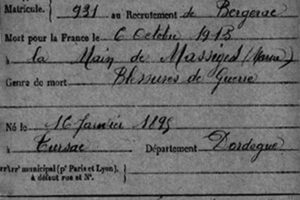 Matricule. 931 au Recrutement de Bergerac
Mort pour la France le 6 Octobre 1915
à la Main de Massiges (Marne)
Genre de mort Blessures de Guerre
Né le 16 Janvier 1895
à Tursac Département Dordogne
Arrr municipal (pr Paris et Lyon),
à défaut rue et N°.